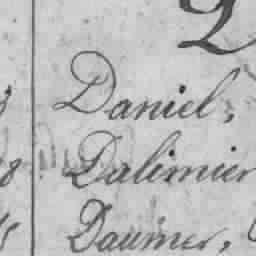 D
Daniel,
8 Dalimier
Daumer,